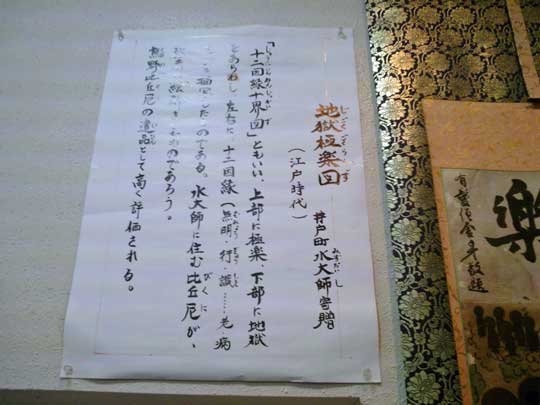 地獄極楽図
じごくごくらくず
井戸町水大師寄贈
みずだいし
(江戸時代)
「十二因縁十界図」ともいい、上部に極楽、下部に地獄
をあらわし左右に、十二因縁(無明・行・識……老・病
したものである。水大師に住む比丘尼が、
びくに
のであろう。
熊野比丘尼の遺品として高く評価される。
楽